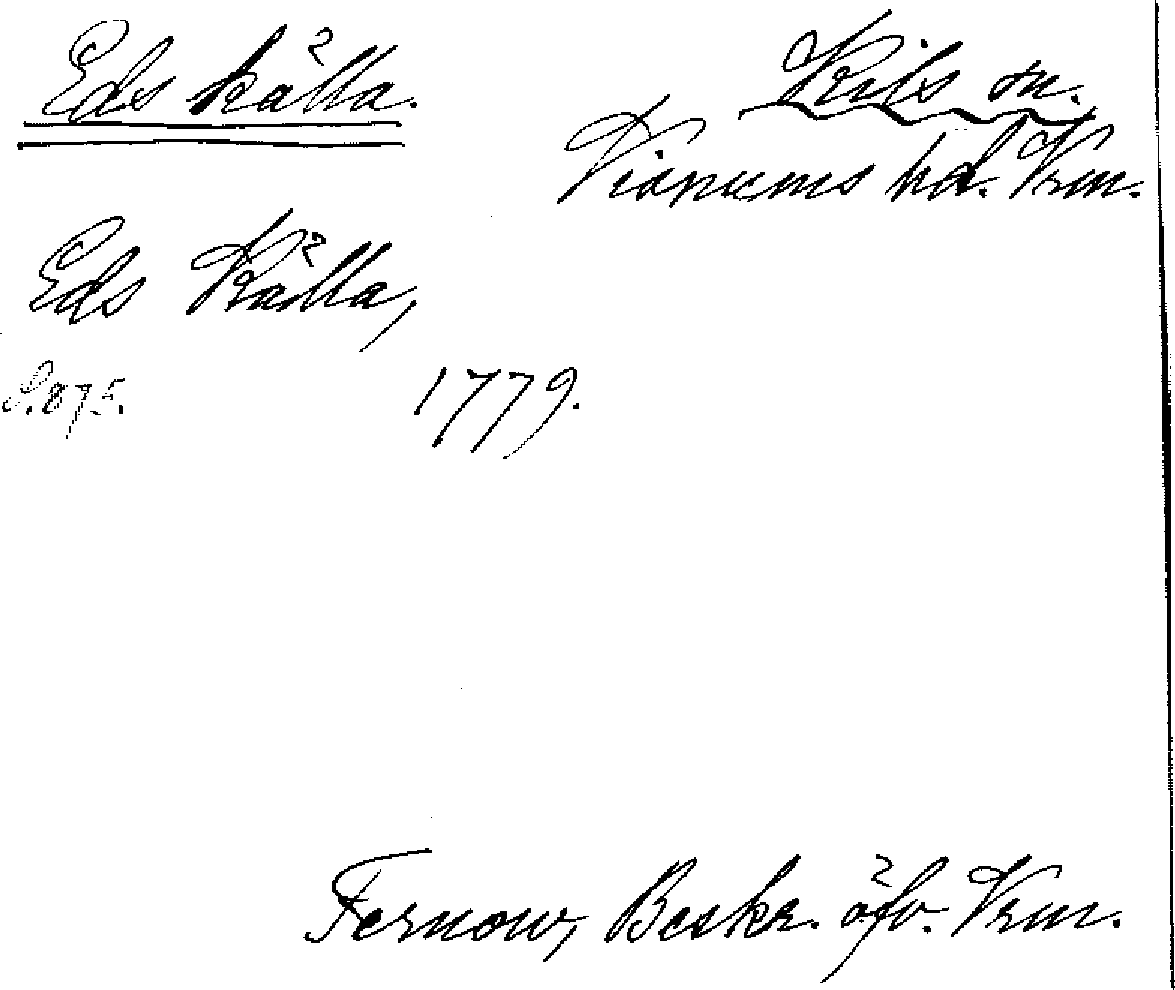 Eds källa.
Kils sn.
Visnums hd. Vrm.
Eds Källa,
S. 875.
1779.
Fernow, Beskr. öfv. Vrm.